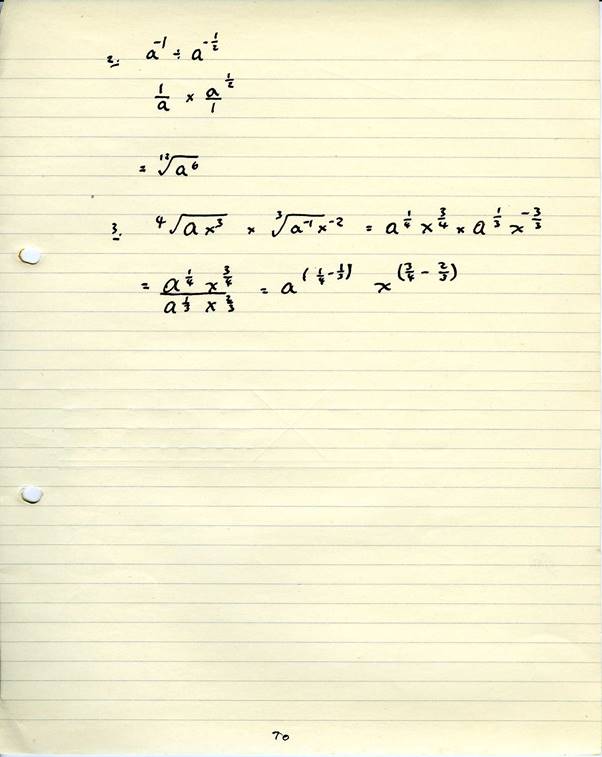 2. a^{-1} ÷ a^{-\frac{1}{2}}
\frac{1}{a} × \frac{a}{1}^{\frac{1}{2}}
= \sqrt[12]{a^6}
3. \sqrt[4]{ax^3} × \sqrt[3]{a^{-1}}x^{-2} = a^{\frac{1}{4}} x^{\frac{3}{4}} × a^{\frac{1}{3}} x^{-\frac{3}{3}}
= \frac{a^{\frac{1}{4}} x^{\frac{3}{4}}}{a^{\frac{1}{3}} x^{\frac{2}{3}}} = a^{(\frac{1}{4}-\frac{1}{3})} x^{(\frac{3}{4}-\frac{2}{3})}
TO